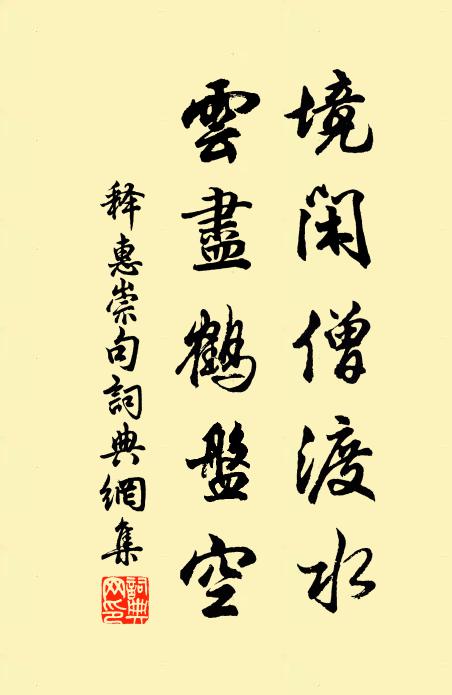 境閑僧渡水
雲盡鶴盤空
释惠崇句詞典網集
詞典
网印